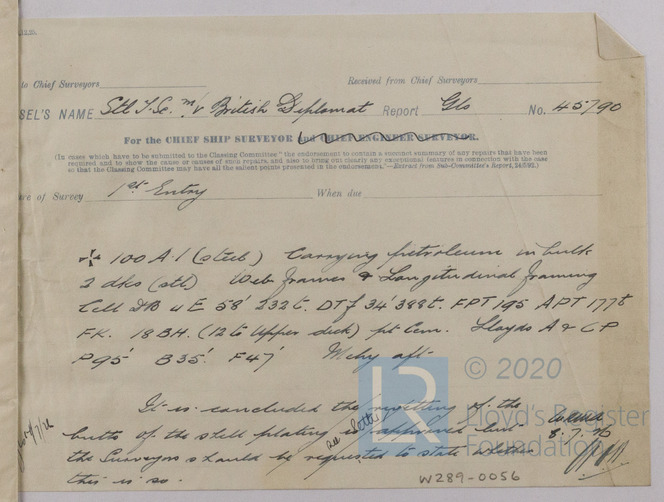 to Chief Surveyors
Received from Chief Surveyors
SEL'S NAME Stl T.Sc. m/v British Diplomat Report Gls No. 45790
For the CHIEF SHIP SURVEYOR and CHIEF ENGINEER SURVEYOR.
(In cases which have to be submitted to the Classing Committee "the endorsement to contain a succinct summary of any repairs that have been
required and to show the cause or causes of such repairs, and also to bring out clearly any exceptional features in connection with the case
so that the Classing Committee may have all the salient points presented in the endorsement."—Extract from Sub-Committee's Report,
ure of Survey 1st Entry When due
✠ 100 A.1 (steel) Carrying petroleum in bulk
2 dks (stl) Web frames & Longitudinal framing
Cell DB u E 58' 232t. DTf 34' 388t. FPT 195 APT 177t
FK. 18 BH. (12 to Upper deck) pt Cem. Lloyds A & CP
P95' B35'. F47' Mchy aft
It is concluded the of the
butts of the shell plating is approved but
the Surveyors should be requested to state whether
this is so.
8.7.26
LR
© 2020
Lloyd's Register
Foundation
W289-0056